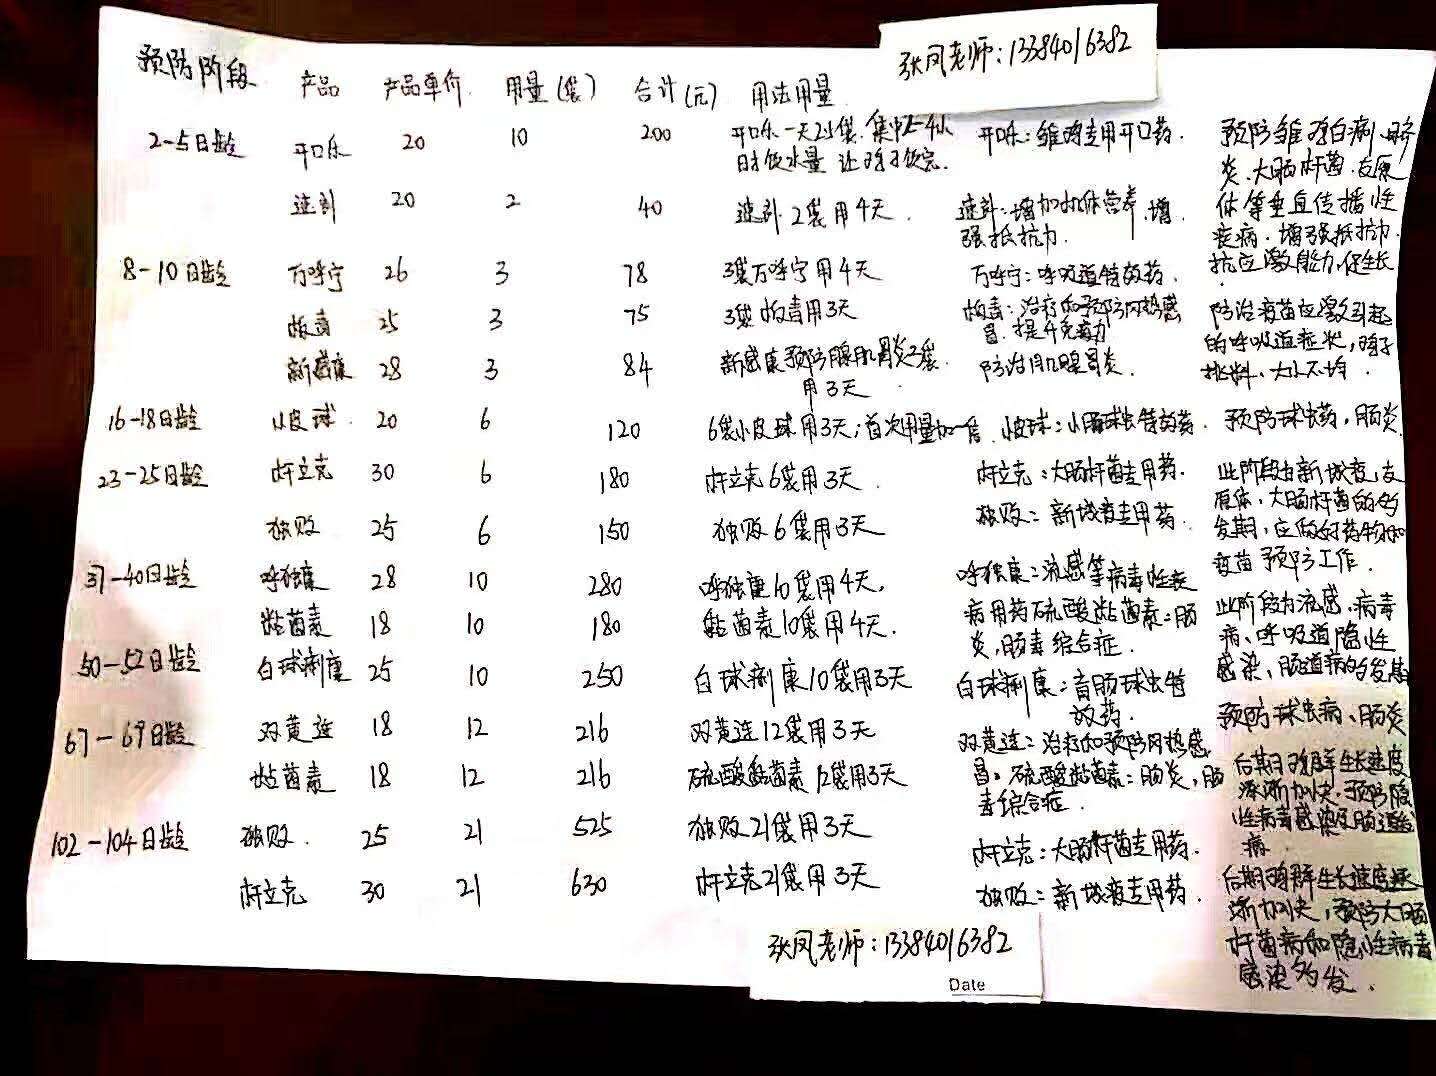 张凤老师：13384016382
预防阶段 产品 产品单价 用量（袋） 合计（元） 用法用量
2-5日龄 开口乐 20 10 200 开口乐一天2.5袋.集中2-4小时饮水量 让鸡子饮完. 开口乐：雏鸡专用开口药. 预防雏鸡白痢.脐炎.大肠杆菌.支原体等垂直传播性疾病.增强抵抗力.抗应激能力.促生长.
速补 20 2 40 速补2袋用4天. 速补：增加机体营养.增强抵抗力.
8-10日龄 万呼宁 26 3 78 3袋万呼宁用4天 万呼宁：呼吸道特效药. 防治疫苗应激引起的呼吸道症状，鸡子挑料、大小不均.
板毒 25 3 75 3袋板毒用3天 板毒：治疗和预防风热感冒.提升免疫力
新感康 28 3 84 新感康预防腺肌胃炎3袋用3天. 防治肌腺胃炎.
16-18日龄 小皮球 20 6 120 6袋小皮球用3天；首次用量加一倍. 小皮球：小肠球虫特效药. 预防球虫药，肠炎.
23-25日龄 杆立克 30 6 180 杆立克6袋用3天. 杆立克：大肠杆菌专用药. 此阶段为新城疫，支原体，大肠杆菌的多发期，应做好药物和疫苗预防工作.
独败 25 6 150 独败6袋用3天 独败：新城疫专用药.
37-40日龄 呼独康 28 10 280 呼独康10袋用4天. 呼独康：流感等病毒性疫病用药 此阶段为流感.病毒病、呼吸道隐性感染、肠道病的多发期
黏菌素 18 10 180 黏菌素10袋用4天. 硫酸黏菌素：肠炎，肠毒综合症.
50-52日龄 白球痢康 25 10 250 白球痢康10袋用3天 白球痢康：盲肠球虫特效药. 预防球虫病、肠炎
67-69日龄 双黄连 18 12 216 双黄连12袋用3天 双黄连：治疗和预防风热感冒. 后期鸡群生长速度逐渐加快.预防隐性病毒感染及肠道疾病
黏菌素 18 12 216 硫酸黏菌素12袋用3天 硫酸黏菌素：肠炎，肠毒综合症.
102-104日龄 独败. 25 21 525 独败21袋用3天 杆立克：大肠杆菌专用药. 后期鸡群生长速度逐渐加快，预防大肠杆菌病和隐性病毒感染多发.
杆立克 30 21 630 杆立克21袋用3天 独败：新城疫专用药.
张凤老师：13384016382
Date